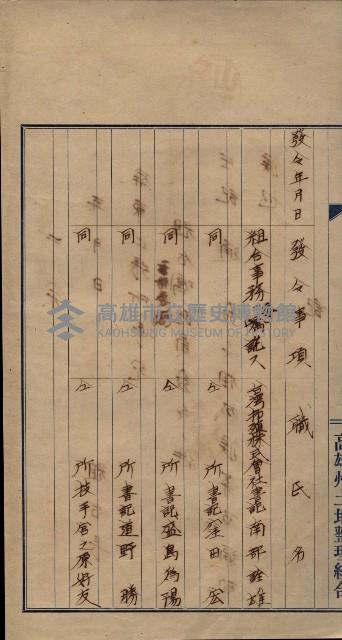 發令年月日 發令事項 職氏名
組合事務ヲ囑託ス 臺灣拓殖株式會社書記 南部 雄
同 仝 所書記窪田 
同 仝 所書記盛島 
同 仝 所書記道野 勝
同 仝 所技手宮之原好友
高雄州
高雄市立歷史博物館
KAOHSIUNG MUSEUM OF HISTORY